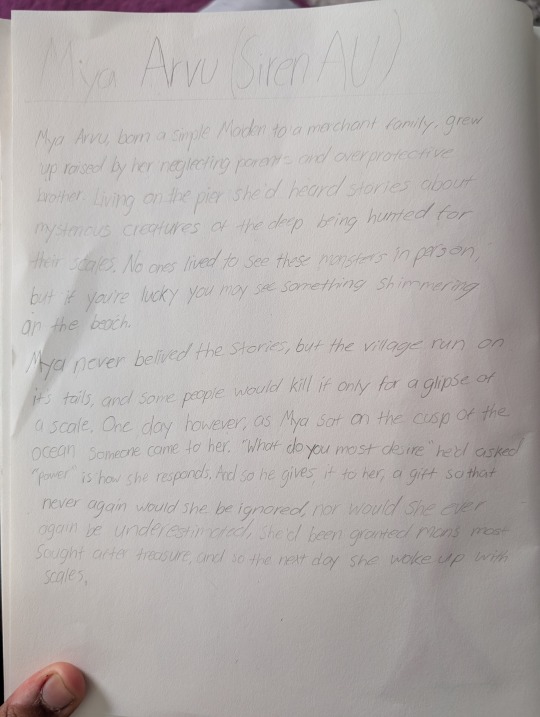 Miya Arvu (Siren AU)
Mya Arvu, born a simple Maiden to a merchant family, grew
up raised by her neglecting parents and overprotective
brother. Living on the pier she'd heard stories about
mysterious creatures of the deep being hunted for
their scales. No ones lived to see these monsters in person,
but if you're lucky you may see something shimmering
on the beach.
Mya never belived the stories, but the village run on
its tails, and some people would kill if only for a glipse of
a scale. One day however, as Mya sat on the cusp of the
ocean someone came to her. "What do you most desire" he'd asked
"power" is how she responds. And so he gives it to her, a gift so that
never again would she be ignored, nor would she ever
again be underestimated, she'd been granted mans most
sought after treasure, and so the next day she woke up with
scales.